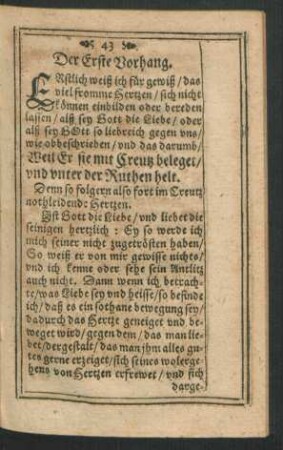 43
Der Erste Vorhang.
ERstlich weiß ich für gewiß / das
viel fromme Hertzen / sich nicht
können einbilden oder bereden
lassen / alß sey Gott die Liebe / oder
alß sey GOtt so liebreich gegen vns /
wie obbeschrieben / vnd das darumb /
Weil Er sie mit Creutz beleget /
vnd vnter der Ruthen helt.
Denn so folgern also fort im Creutz
nothleidend: Hertzen.
Ist Gott die Liebe / vnd liebet die
seinigen hertzlich : Ey so werde ich
mich seiner nicht zugetrösten haben /
So weiß er von mir gewisse nichts /
vnd ich kenne oder sehe sein Antlitz
auch nicht. Dann wenn ich betrach-
te / was Liebe sey vnd heisse / so befinde
ich / daß es ein sothane bewegung sey /
dadurch das Hertze geneiget vnd be-
weget wird / gegen dem / das man lie-
bet / dergestalt / das man jhm alles gu-
tes gerne erzeiget / sich seines wolerge-
hens von Hertzen erfrewet / vnd sich
darge-